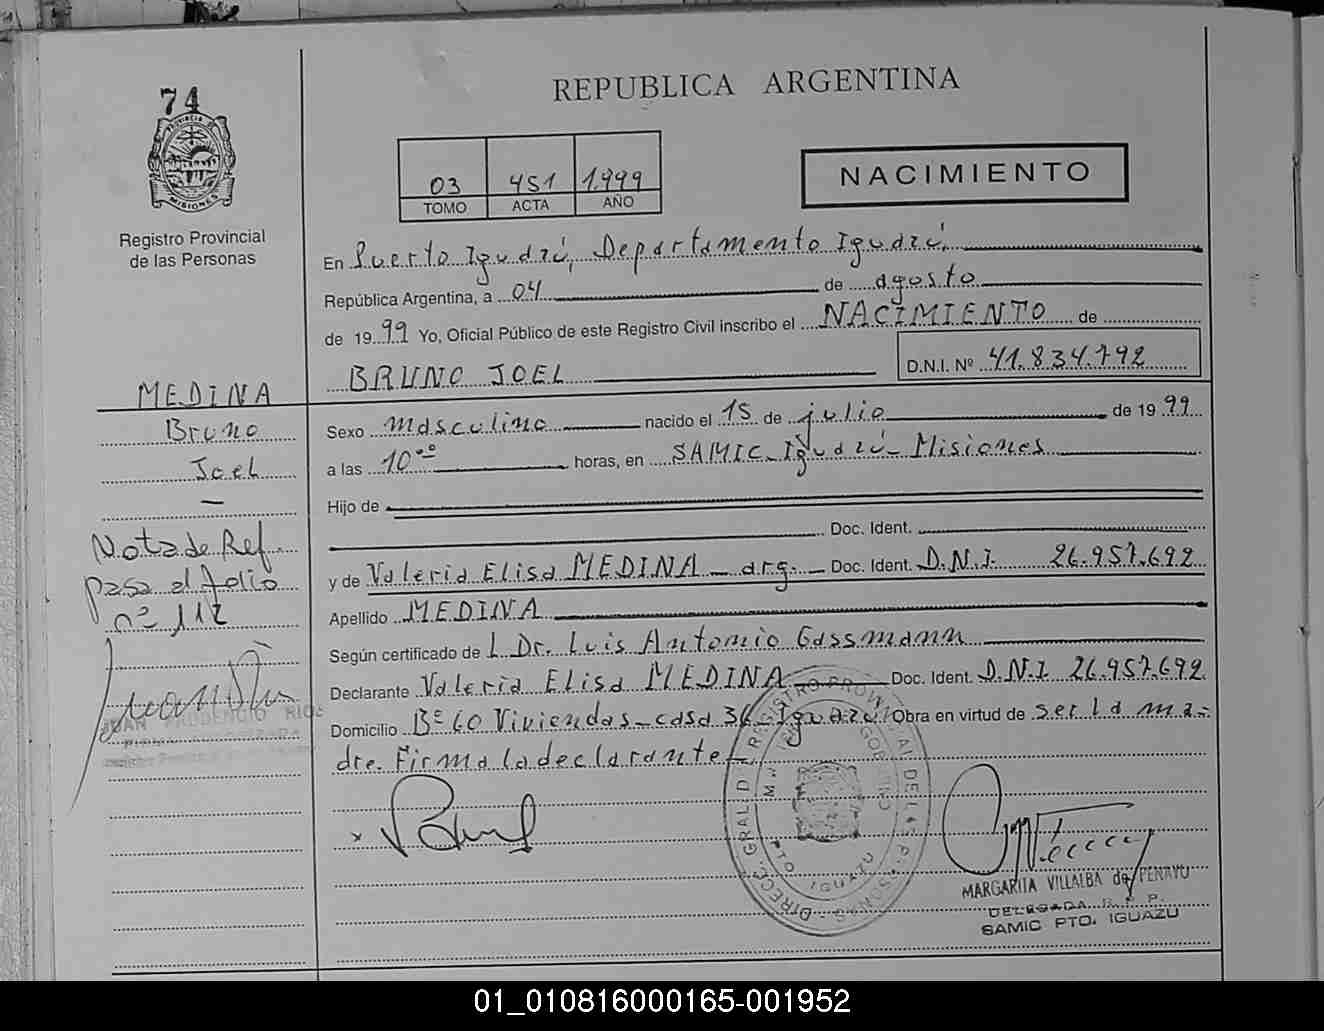 REPUBLICA ARGENTINA
74
PROVINCIA DE
MISIONES
Registro Provincial
de las Personas
03 451 1.999
TOMO ACTA AÑO
NACIMIENTO
En Puerto Iguazú, Departamento Iguazú,
República Argentina, a 04 de agosto
de 1999 Yo, Oficial Público de este Registro Civil inscribo el NACIMIENTO de
BRUNO JOEL D.N.I. Nº 41.834.792
MEDINA
Bruno
Joel
Sexo masculino nacido el 15 de julio de 1999
a las 10°° horas, en SAMIC-Iguazú-Misiones
Hijo de
Doc. Ident.
y de Valeria Elisa MEDINA - arg. - Doc. Ident. D.N.I. 26.957.692
Apellido MEDINA
Nota de Ref.
pasa al folio
nº 112
Según certificado de L Dr. Luis Antonio Gassmann
Declarante Valeria Elisa MEDINA Doc. Ident. D.N.I. 26.957.692
Domicilio Bº 60 Viviendas-casa 36-Iguazú Obra en virtud de ser la ma-
dre. Firma la declarante
JUAN PRUDENCIO RIOS
FIRMA AUTORIZADA
DIREC. GRAL. D REGISTRO PROVINCIAL DE LAS PERSONAS
PTO IGUAZU
MARGARITA VILLALBA de PENAYO
DELEGADA R. P. P.
SAMIC PTO. IGUAZU
01_010816000165-001952